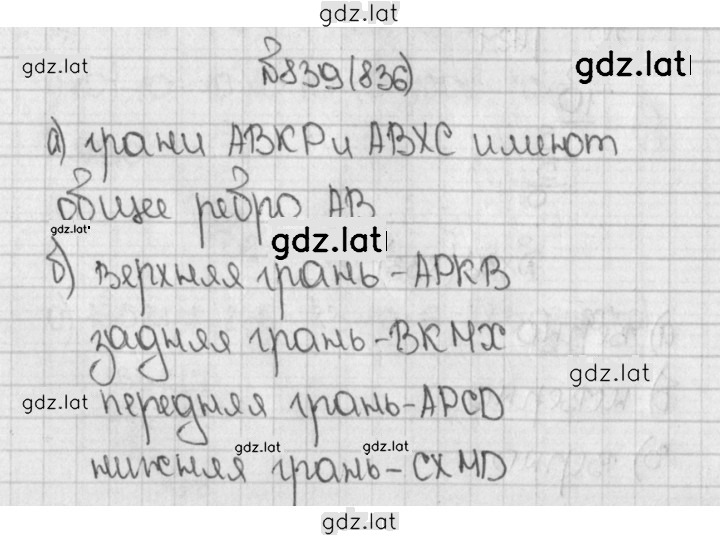 gdz.lat
gdz.lat
№839(836)
gdz.lat
а) грани АВКР и АВХС имеют
общее ребро АВ
gdz.lat
gdz.lat
б) верхняя грань - АРКВ
задняя грань - ВКМХ
gdz.lat
gdz.lat
передняя грань - АРСD
gdz.lat
gdz.lat
нижняя грань - СХМD
gdz.lat